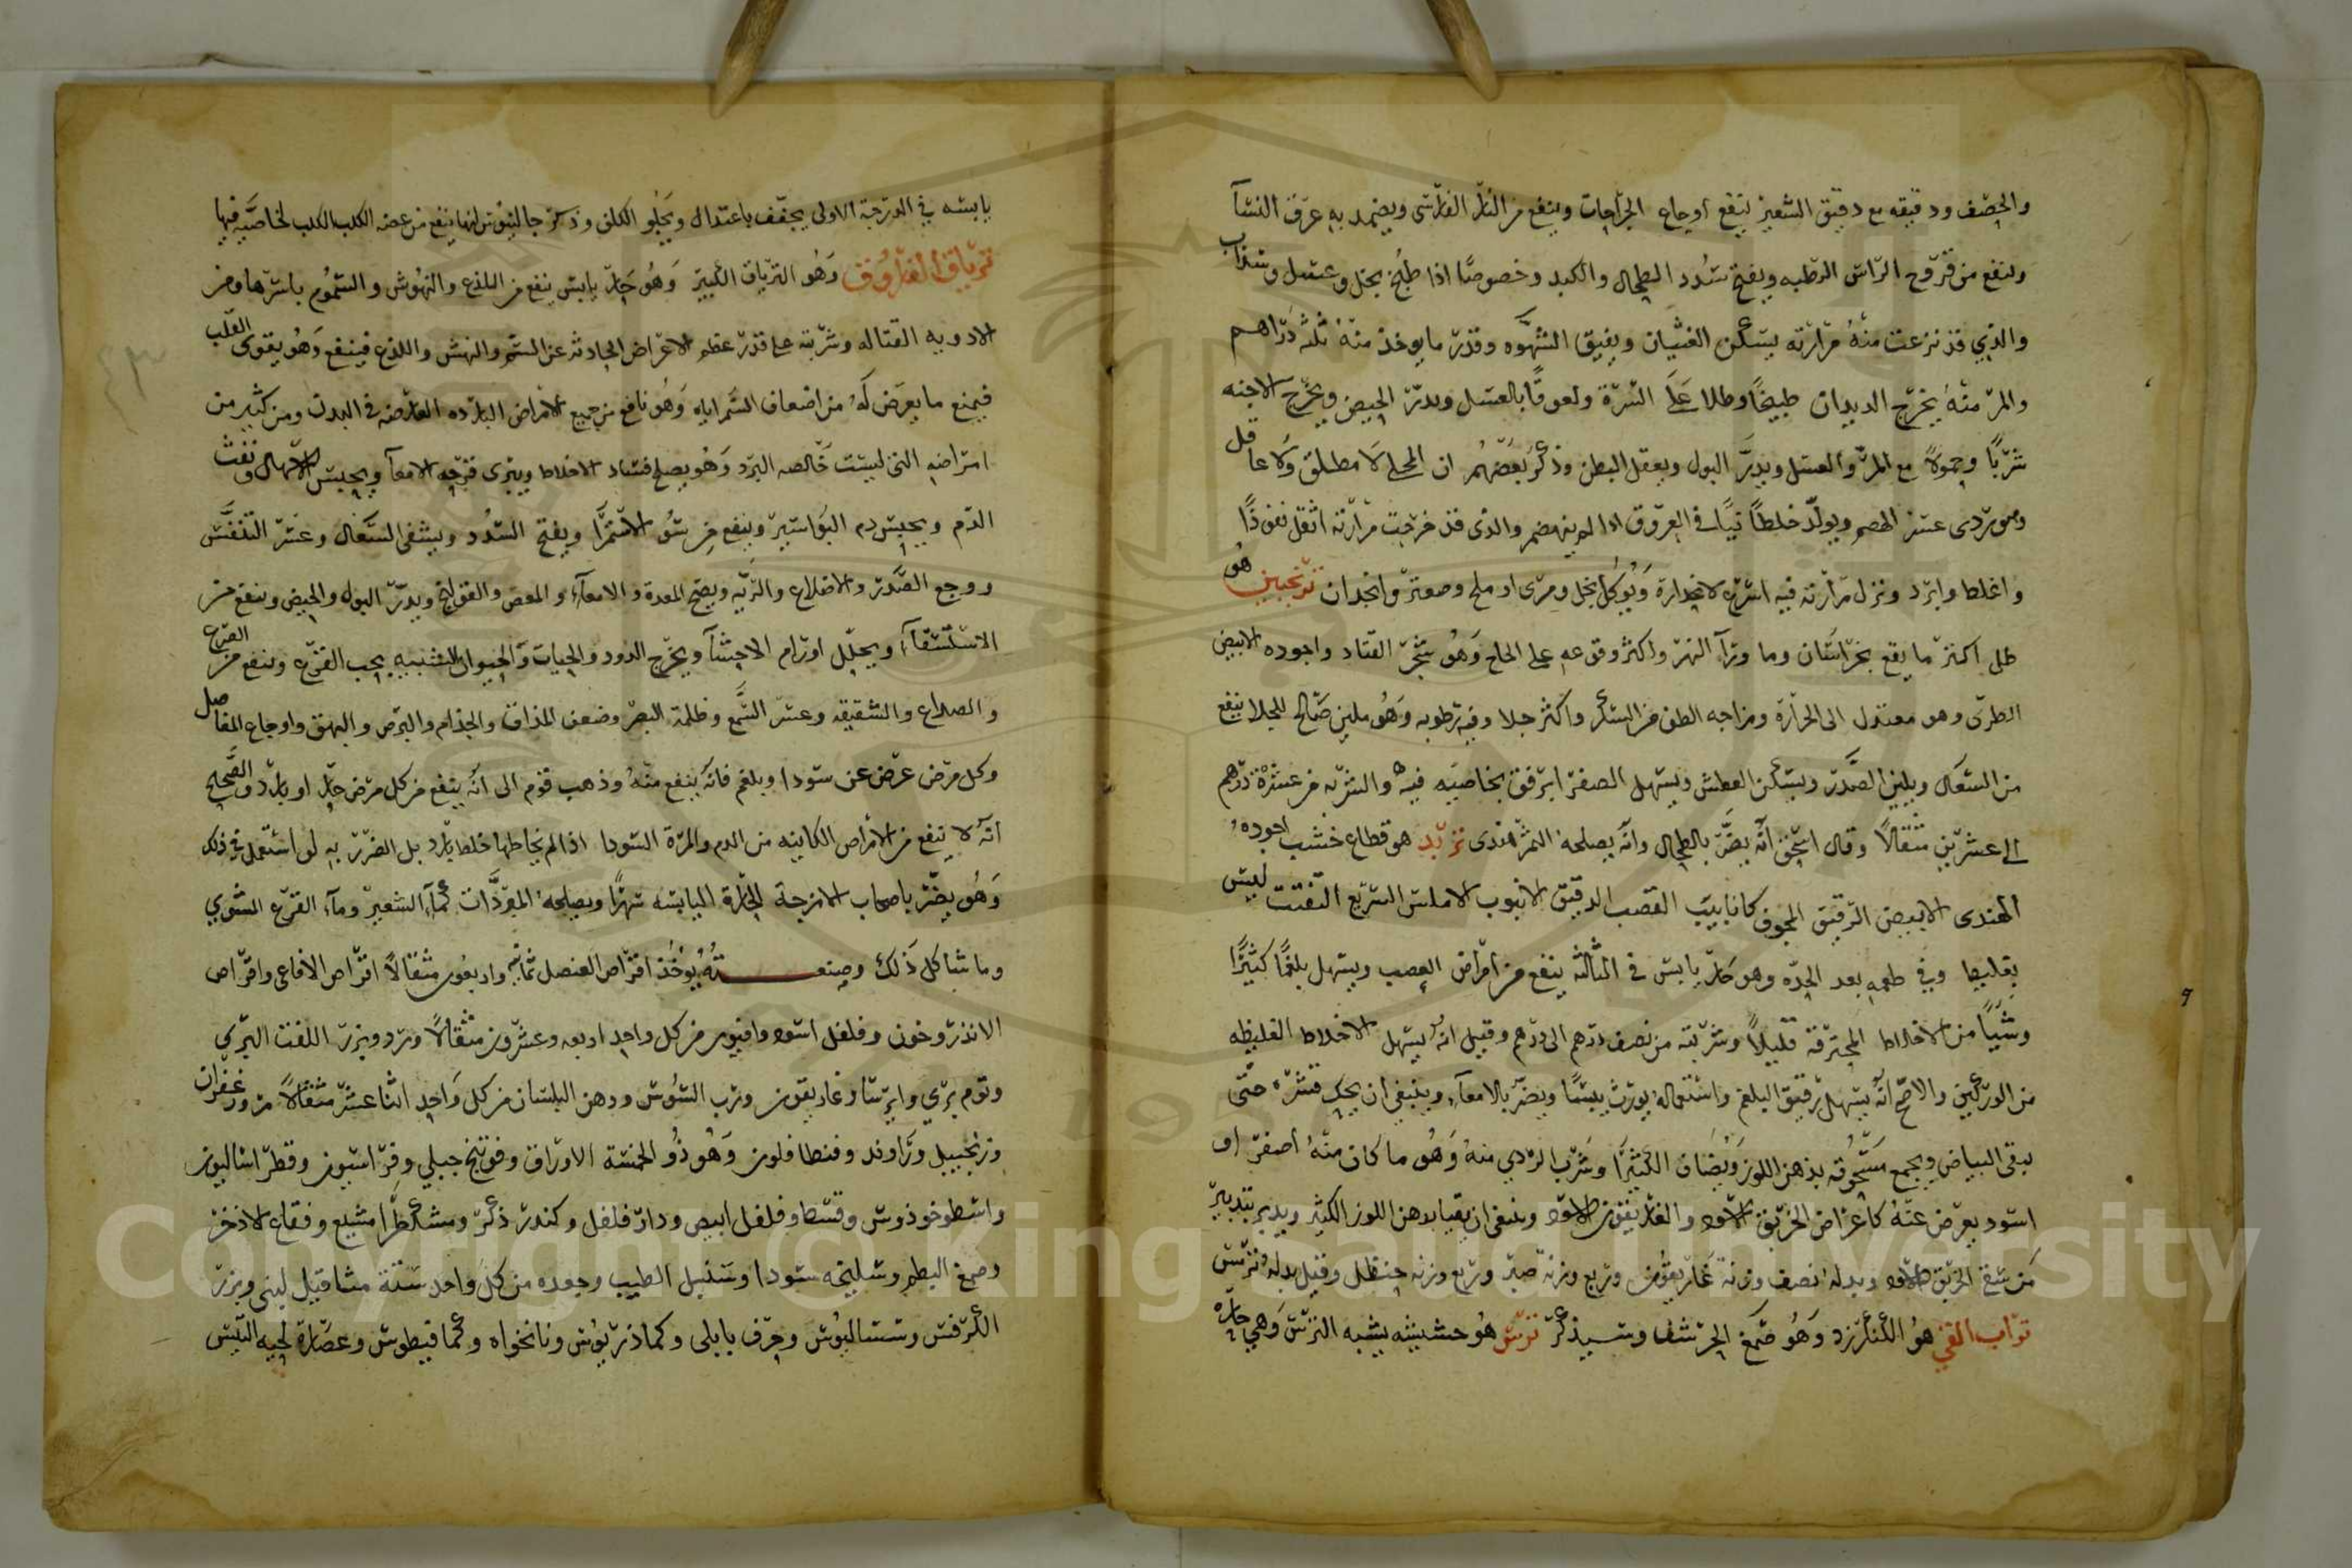 والحصف ودقيقه مع دقيق الشعير ينفع اوجاع الجراحات وينفع من النار الفارسى ويضمد به عرق النسآ
وينفع من قروح الراس الرطبه ويفتح سُدد الطحال والكبد وخصوصًا اذا طبخ بخل وعسل وسذاب
والذي قد نزعت منهُ مرارته يسكن الغثيان ويفيق الشهوه وقدر ما يوخذ منهُ ثلثه دراهم
والمر منهُ يخرج الديدان طبيخًا وطلا عَلَى السّرّة ولعوقًا بالعسل ويدرّ الحيض ويخرج الاجنه
شربًا وحمولاً مع المرّ والعسل ويدرَّ البول ويعقل البطن وذكر بعضهُم ان المحلى لا مطلق ولا عاقل
وهو ردى عسر الهضم ويولّد خلطًا نيًا فى العروق اذا لم ينهضم والذى قد خرجت مرارته اثقل نفوذًا
واغلظ وابرد ونزل مرارته فيه اسرع لانحداره ويُوكل بخل ومرى او ملح وصعتر وانجدان ترنجبين هو
طل اكثر ما يقع بخراسَان وما ورآ النهر واكثر وقوعه على الحاج وَهُو شجر القتاد واجوده الابيض
الطرىّ وهو معتدل الى الحرارة ومزاجه الطف من السكر واكثر جلا وفيه رطوبه وَهُو ملين صالح للجلا ينفع
من السعال ويلين الصَّدر ويسكن العطش ويسهل الصفرا برفق بخاصيَه فيه والشربه من عشرة درهم
الى عشرين مثقالاً وقال اسحق انهُ يضرّ بالطحال وانهُ يصلحه التمر هندى تربد هو قطاع خشب اجودهُ
الهندى الابيض الرقيق المجوف كانابيب القصب الدقيق الانبوب الاملس السريع التفتت ليس
بغليظ وفى طعمه بعد الحدّه وهو حارّ يابس فى الثالثه ينفع من امراض العصب ويسهل بلغمًا كثيرًا
وشيًا من الاخلاط المحترقة قليلاً وشربته من نصف درهم الى درهم وقيل انهُ يسهل الاخلاط الغليظه
من الوركين والاصح انه يسهل رقيق البلغم واستعماله يورث يبسًا ويضرّ بالامعآ، وينبغى ان يحك قشره حتّى
يبقى البياض ويجمع مسحوقه بدهن اللوز ويُضاف الكثيرًا وشَرب الردي منهُ وَهُو ما كان منهُ اصفر او
اسود يعرض عنهُ كاعراض الخربق الاسود والغاريقون الاسود وينبغى ان يقيا بدهن اللوز الكثير ويدبر بتدبير
من سقى الخربق الاسود وبدله نصف وزنة غاريقون وربع وزنة صبر وربع وزنه حنظل وقيل بدله ترتس
تراب القي هُو الكنكرزد وَهُو صَمغ الحرشف وسيذكر ترتس هُو حشيشه يشبه الترتس وَهي حارّه
يابسه في الدرجة الاولى يجفف باعتدال ويَجلو الكلف وذكر جالينوس انها ينفع من عضه الكلب الكلب لخاصيّه فيها
ترياق الفاروق وَهُو الترياق الكبير وَهُو حَارّ يابس ينفع من اللذع والنهُوش والسمُوم باسرها ومن
الادويه القتاله وشربته على قدر عظم الاعراض الحادثه عن السم والنهش واللذع فينفع وَهُو يقوى القلب
فيمنع ما يعرَض لَهُ من اضعاف السَّم اياه وَهُو نافع من جميع الامراض البارده العارضه فى البدن ومن كثير من
امراضه التى ليست خالصه البرد وَهُو يصلح فساد الاخلاط ويبرى قرحه الامعآ ويحبس الاسهال ونفث
الدّم ويحبس دم البَواسير وينفع من سُو الاستمرَآ ويفتح السُدد ويشفى السَّعال وعسر التنفّس
ووجع الصَّدر والاضلاع والرّيّه ويصح المعدة والامعآء والمغص والقولنج ويدرّ البول والحيض وينفع من
الاستسقآء ويحلّل اورام الاحشآ ويخرج الدود والحيات وَالحيوان الشبيه بحب القرع وينفع من الصرع
والصداع والشقيقه وعسر السَّمع وظلمة البصر وضعف المذاق والجذام والبرص والبهق واوجاع المفاصل
وكل مرض عرض عن سودا وبلغم فانهُ ينفع منهُ وذهب قوم الى انهُ ينفع من كل مرض حارّ او بارد والصَّحيح
انهُ لا ينفع من الامراض الكاينه من الدم والمرة السودا اذا لم يخالطها خلط بارد بل الضرر به لو استعمل فى ذلك
وَهُو يضر باصحاب الامزجة الحارة اليابسه ضررًا ويصلحه المبرّدَات كمآء الشعير ومآء القرع المشوي
وما شاكل ذَلك وصنعـــتهُ يُوخُذ اقراص العنصل ثمانيه واربعُون مثقالاً اقراص الافاعى واقراص
الانذروخون وفلفل اسود وافيون من كل واحد اربعه وعشرون مثقالاً ورد وبزر اللفت البري
وثوم برّي وايرسا وغاريقون ورب السُوس ودهن البلسان من كل وَاحِد اثنا عشر مثقالاً مر وزعفران
وزنجبيل ورَاوند وفنطافلون وَهُو ذُو الخمسَة الاوراق وفوتنج جبلي وفراسيون وفطراساليون
واسطوخوذوس وقسط وفلفل ابيض ودار فلفل وكندر ذكر ومشكطرامشيع وفقاع الاذخر
وصمغ البطم وسليخه سودا وسنبل الطيب وجعده من كل واحد ستة مثاقيل لبنى وبزر
الكرفس وسساليُوس وحرف بابلى وكماذريُوس ونانخواه وكمافيطوس وعصَارة لحيه التيس